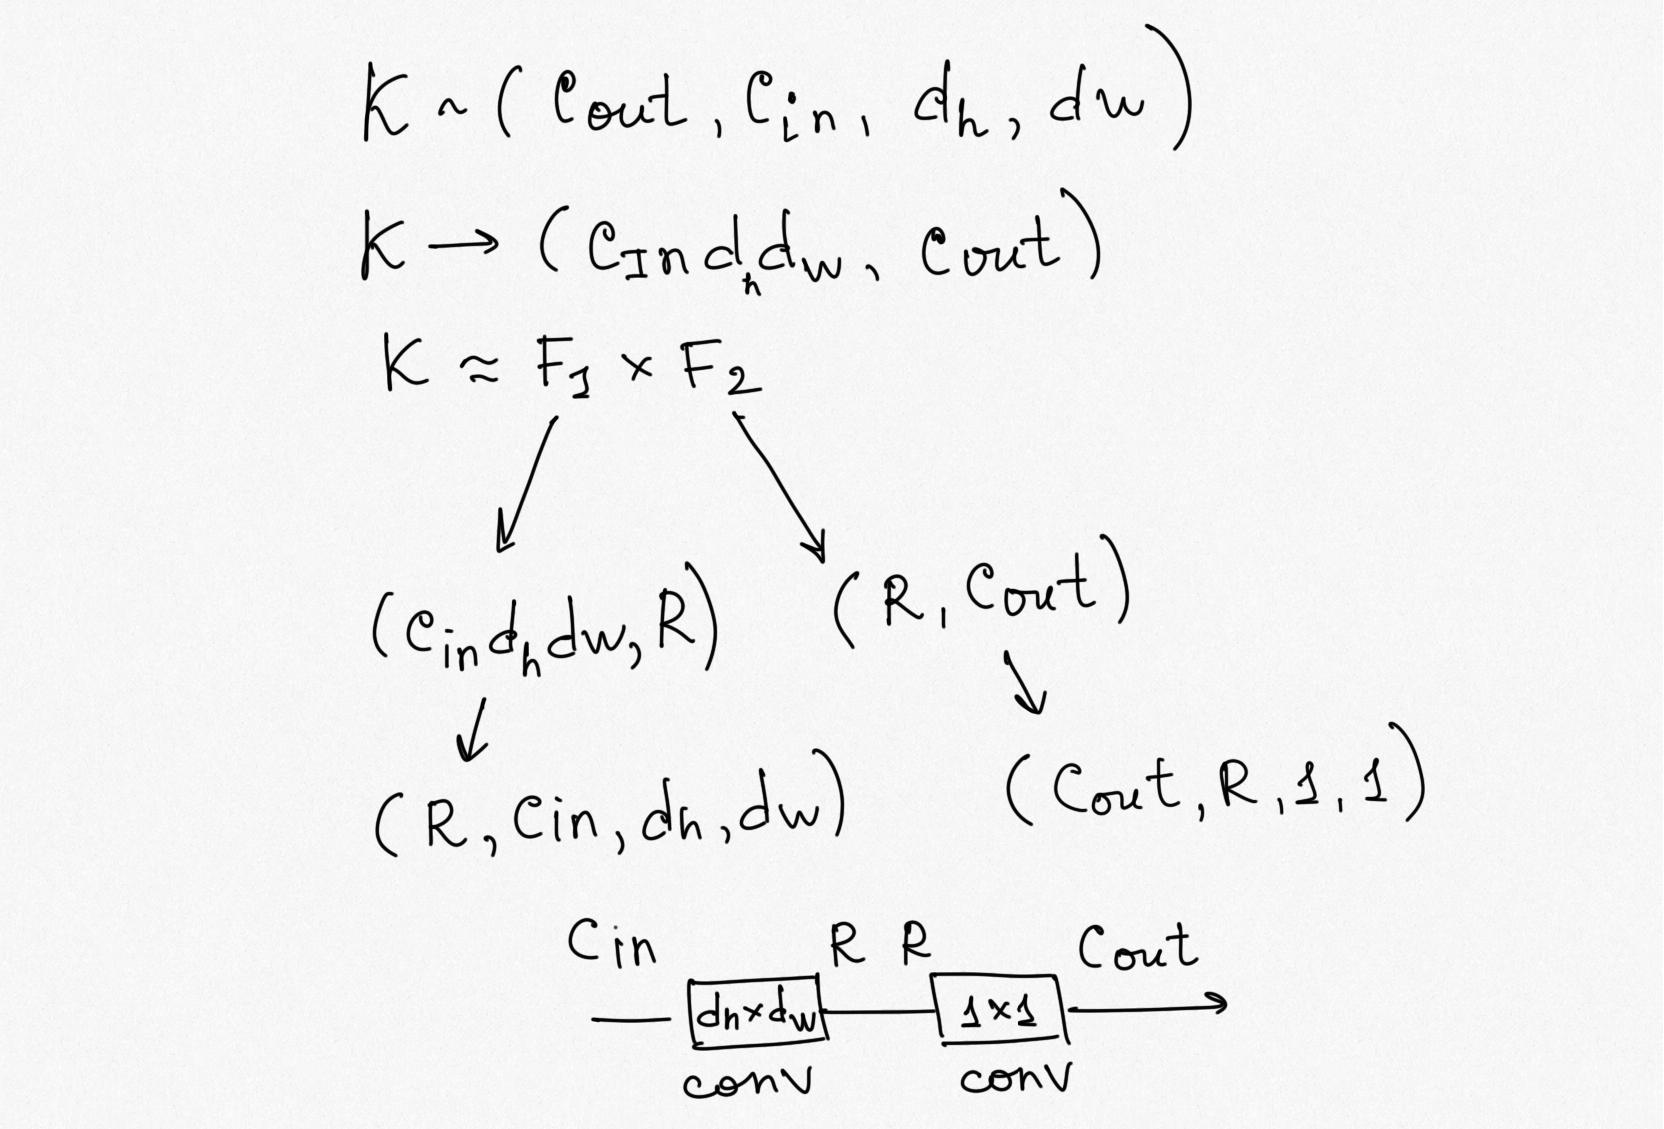 K ~ (Cout, Cin, dh, dw)
K → (CIndhdw, Cout)
K ≈ F1 × F2
(Cindhdw, R) (R, Cout)
(R, Cin, dh, dw) (Cout, R, 1, 1)
Cin R R Cout
dh×dw 1×1
conv conv